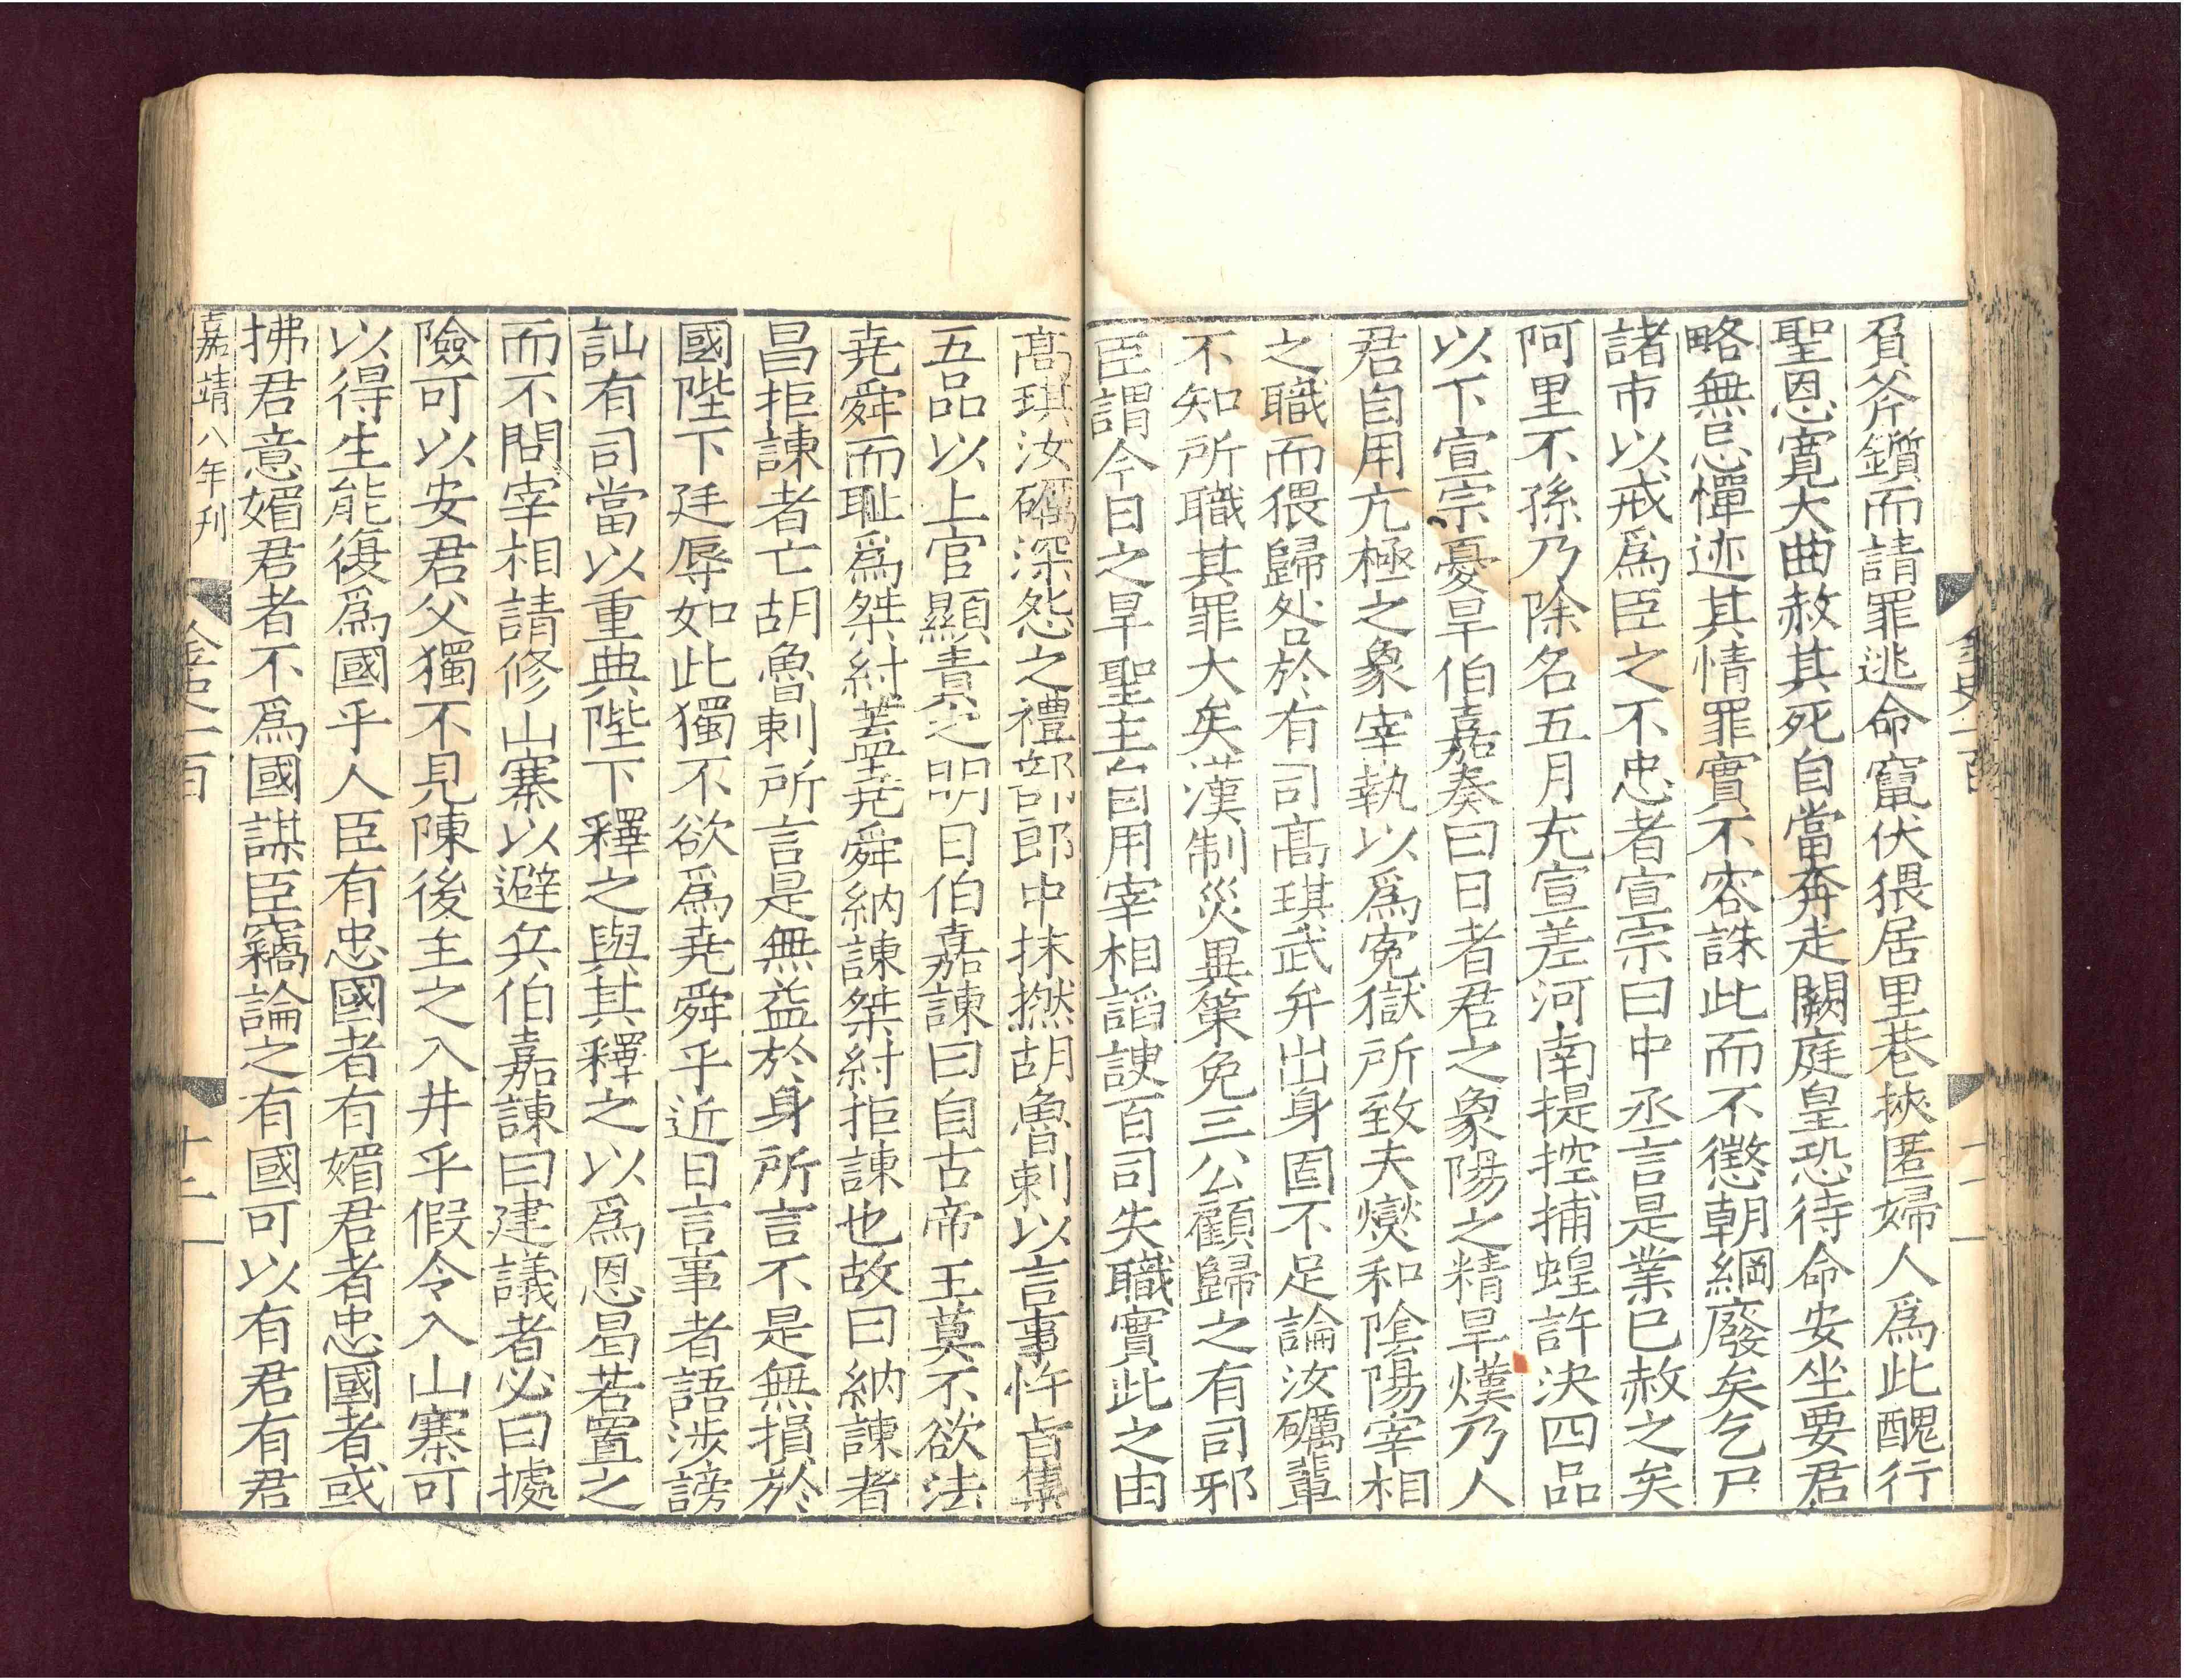 負斧鑕而請罪逃命竄伏猥居里巷挾匿婦人爲此醜行
聖恩寬大曲赦其死自當奔走闕庭皇恐待命安坐要君
略無忌憚迹其情罪實不容誅此而不懲朝綱廢矣乞尸
諸市以戒爲臣之不忠者宣宗曰中丞言是業已赦之矣
阿里不孫乃除名五月充宣差河南提控捕蝗許決四品
以下宣宗憂旱伯嘉奏曰日者君之象陽之精旱熯乃人
君自用亢極之象宰執以爲冤獄所致夫燮和陰陽宰相
之職而猥歸咎於有司高琪武弁出身固不足論汝礪輩
不知所職其罪大矣漢制災異策免三公顧歸之有司邪
臣謂今日之旱聖主自用宰相諂諛百司失職實此之由
高琪汝礪深怨之禮部郎中抹撚胡魯剌以言事忤旨集
五品以上官顯責之明日伯嘉諫曰自古帝王莫不欲法
堯舜而耻爲桀紂蓋堯舜納諫桀紂拒諫也故曰納諫者
昌拒諫者亡胡魯剌所言是無益於身所言不是無損於
國陛下廷辱如此獨不欲爲堯舜乎近日言事者語涉謗
訕有司當以重典陛下釋之與其釋之以爲恩曷若置之
而不問宰相請修山寨以避兵伯嘉諫曰建議者必曰據
險可以安君父獨不見陳後主之入井乎假令入山寨可
以得生能復爲國乎人臣有忠國者有媚君者忠國者或
拂君意媚君者不爲國謀臣竊論之有國可以有君有君
嘉靖八年刊
金史一百
十二